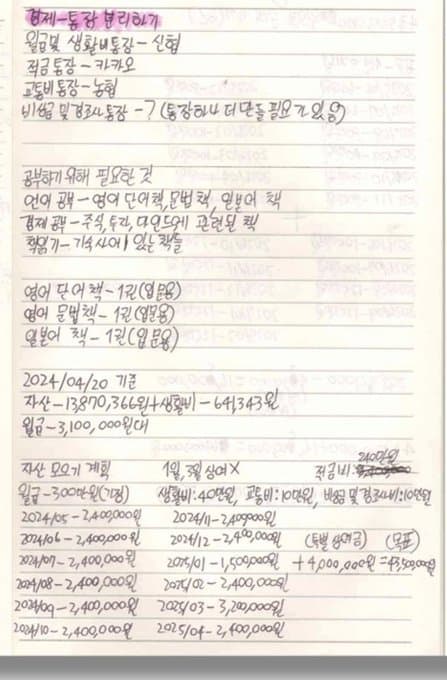 경제-통장 분리하기
월급및 생활비통장-신협
적금통장-카카오
교통비통장-농협
비상금 및 경조사통장-? (통장하나 더 만들 필요가 있음)
공부하기위해 필요한 것
언어 공부-영어 단어책, 문법책, 일본어 책
경제공부-주식, 투자, 마인드에 관련된 책
책읽기-기숙사에 있는책들
영어 단어책-1권(입문용)
영어 문법책-1권(입문용)
일본어 책-1권(입문용)
2024/04/20 기준
자산-13,870,366원+생활비-641,343원
월급-3,100,000원대
240만원
자산 모으기 계획 1월, 3월 상여X 적금비:
월급-300만원(가정) 생활비:40만원, 교통비:10만원, 비상금 및 경조사비:10만원
2024/05-2,400,000원 2024/11-2,400,000원
2024/06-2,400,000원 2024/12-2,400,000원 (특별 상여금) (목표)
2024/07-2,400,000원 2025/01-1,500,000원 +4,000,000원=43,500,000원
2024/08-2,400,000원 2025/02-2,400,000원
2024/09-2,400,000원 2025/03-3,200,000원
2024/10-2,400,000원 2025/04-2,400,000원